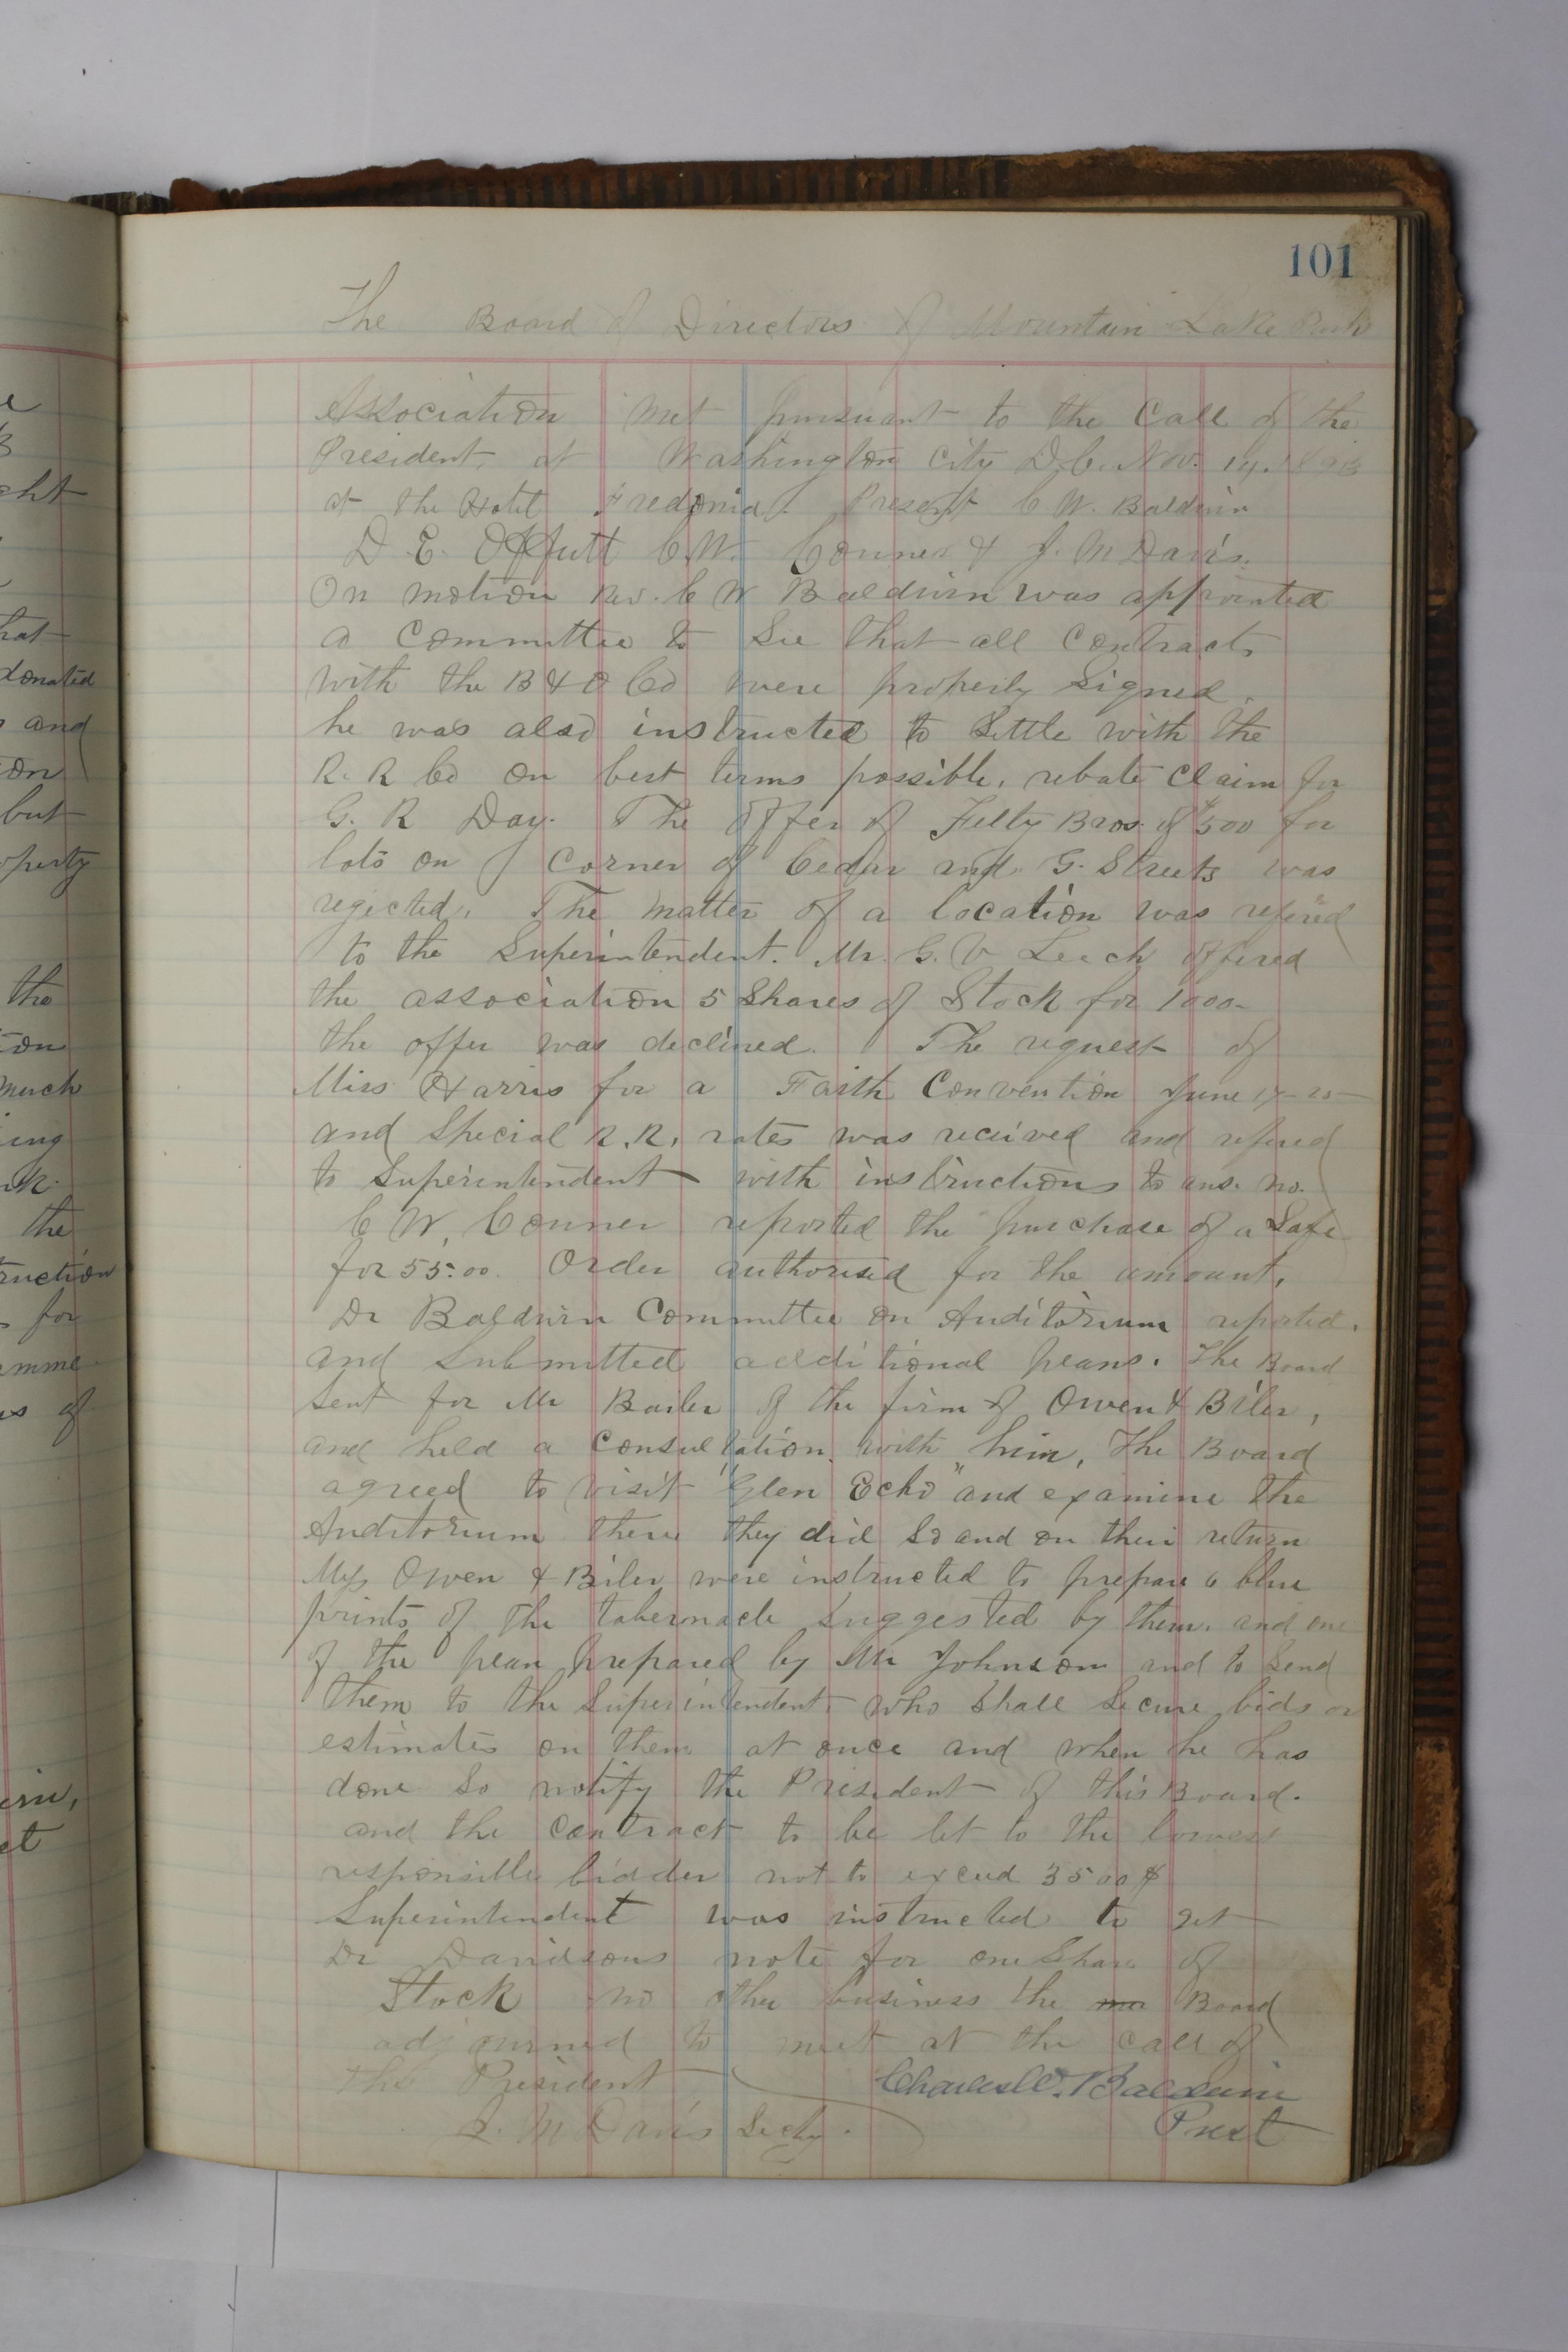 101
The Board of Directors of Mountain Lake Park
Association met pursuant to the Call of the
President, at Washington City D.C. Nov. 14. 1893
at the Hotel Fredonia. Present C W. Baldwin
D. E. Offutt C. W. Conner & J. M Davis.
On motion Rev. C W Baldwin was appointed
a Committee to See that all Contracts
with the B & O Co were properly Signed.
he was also instructed to Settle with the
R. R Co on best terms possible, rebate Claim for
G. R Day. The offer of Felty Bros. of $500 for
lots on Corner of Cedar and G. Streets was
rejected. The matter of a location was refered
to the Superintendent. Mr. G. V Leech offered
the association 5 Shares of Stock for 1000-
the offer was declined. The request of
Miss Harris for a Faith Convention June 17-25
and Special R.R. rates was received and refered
to Superintendent with instructions to ans. no.
C W, Conner reported the purchase of a Safe
for 55.00. Order authorised for the amount.
Dr Baldwin Committee on Auditorium reported.
and Submitted additional plans. The Board
Sent for Mr Bailer of the firm of Owen & Biler,
and held a Consultation with him, The Board
agreed to visit "Glen Echo" and examine the
Auditorium there they did So and on their return
Mess Owen & Biler were instructed to prepare 6 blue
prints of the tabernacle Suggested by them. and one
of the plan prepared by Mr Johnson and to Send
them to the Superintendent, who Shall Secure bids or
estimates on them at once and when he has
done So notify the President of this Board.
and the Contract to be let to the lowest
responsible bidder not to exceed 3500$
Superintendent was instructed to get
Dr Davidsons note for one Share of
Stock no other business the Board
adjourned to meet at the call of
the President Charles W. Baldwin
J. M Davis Secty. Prest